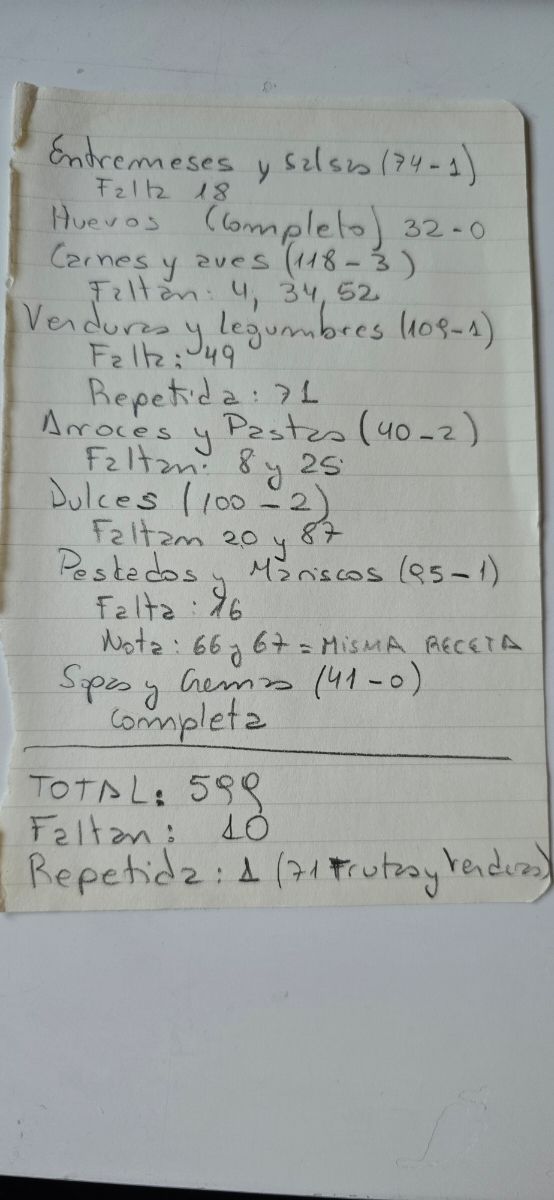 Entremeses y salsas (74-1)
Falta 18
Huevos (Completo) 32-0
Carnes y aves (118-3)
Faltan: 4, 34, 52
Verduras y legumbres (109-1)
Falta: 49
Repetida: 71
Arroces y Pastas (40-2)
Faltan: 8 y 25
Dulces (100-2)
Faltan 20 y 87
Pescados y Mariscos (95-1)
Falta: 16
Nota: 66 y 67 = MISMA RECETA
Sopas y Cremas (41-0)
Completa
TOTAL: 599
Faltan: 10
Repetida: 1 (71 Frutas y Verduras)